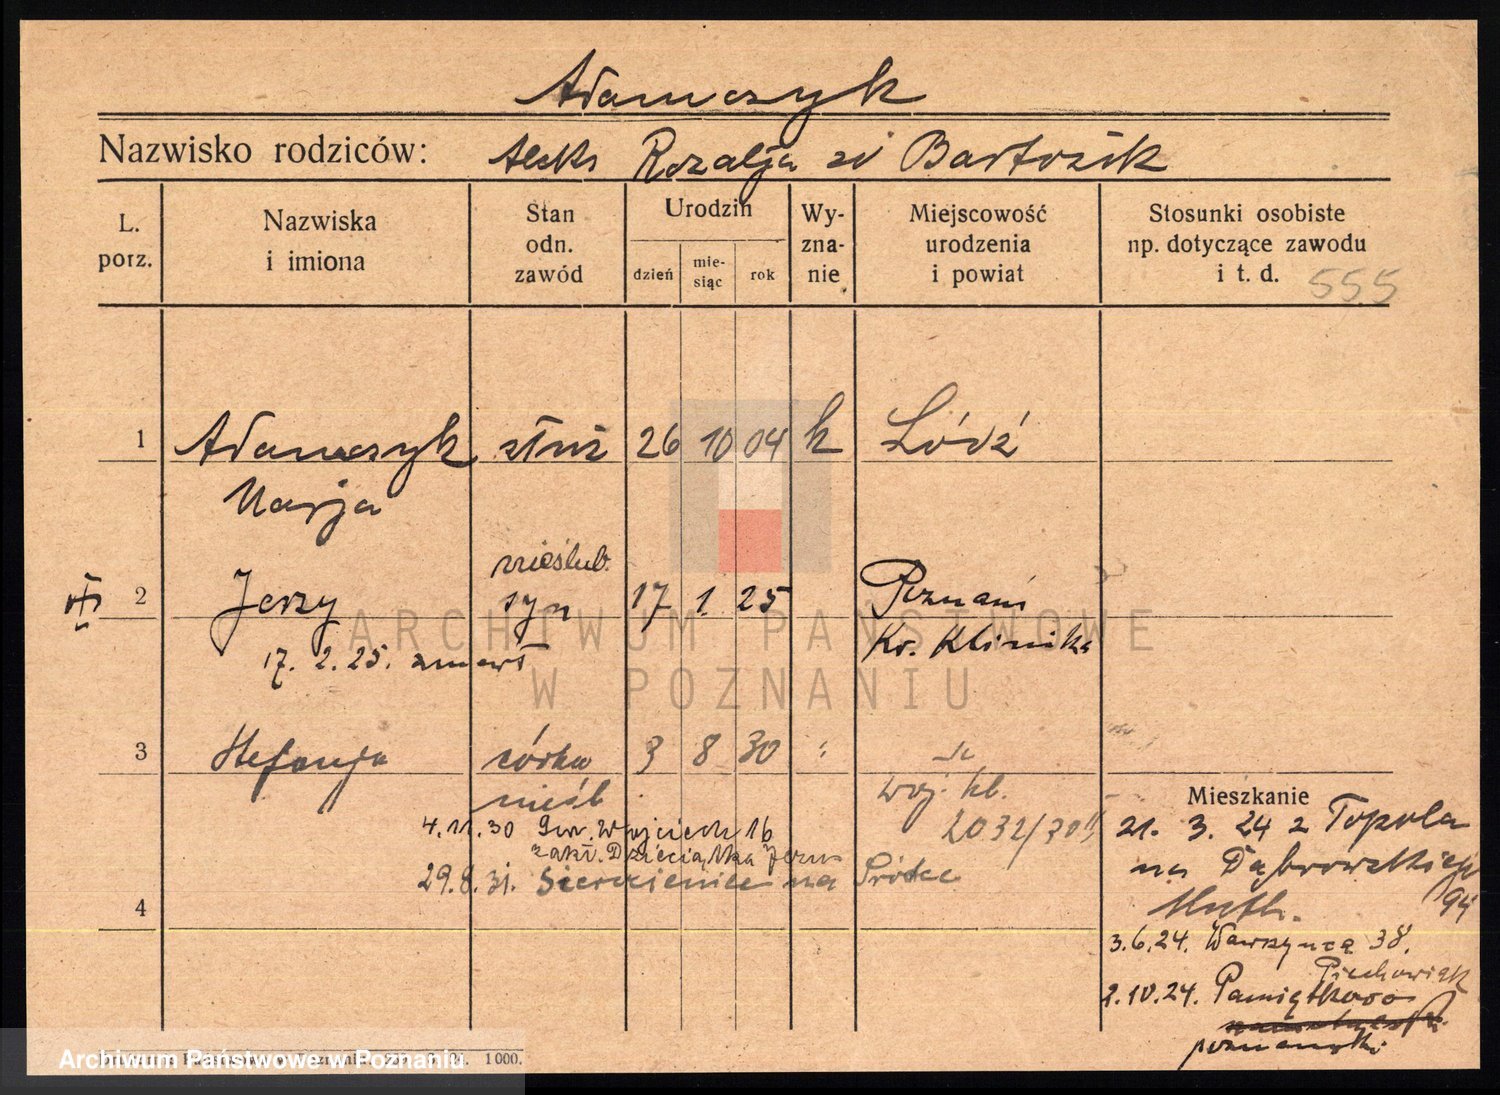 Adamczyk
Nazwisko rodziców: Aleks Rozalja zd Bartosik
L. porz.
Nazwiska i imiona
Stan odn. zawód
Urodzin
dzień
mie-siąc
rok
Wy-zna-nie
Miejscowość urodzenia i powiat
Stosunki osobiste np. dotyczące zawodu i t. d.
555
1 Adamczyk służ 26 10 04 k Łódź
Marja
nieślub.
2 Jerzy syn 17 1. 25 Poznań
17. 2. 25. zmarł Kr. Klinika
3 Stefanja córka 3 8 30 "
nieśl woj. kl.
2032/30
4.11.30 Św. Wojciech 16
zakł. Dzieciątka Jezus
29.8.31. Sierociniec na Śródce
4
Mieszkanie
21. 3. 24 z Topola
na Dąbrowskiego
94
3.6.24. Wawrzynca 38.
Piechowiak
2.10.24. Pamiątkowo
poznański
1000.
ARCHIWUM PAŃSTWOWE
W POZNANIU
Archiwum Państwowe w Poznaniu